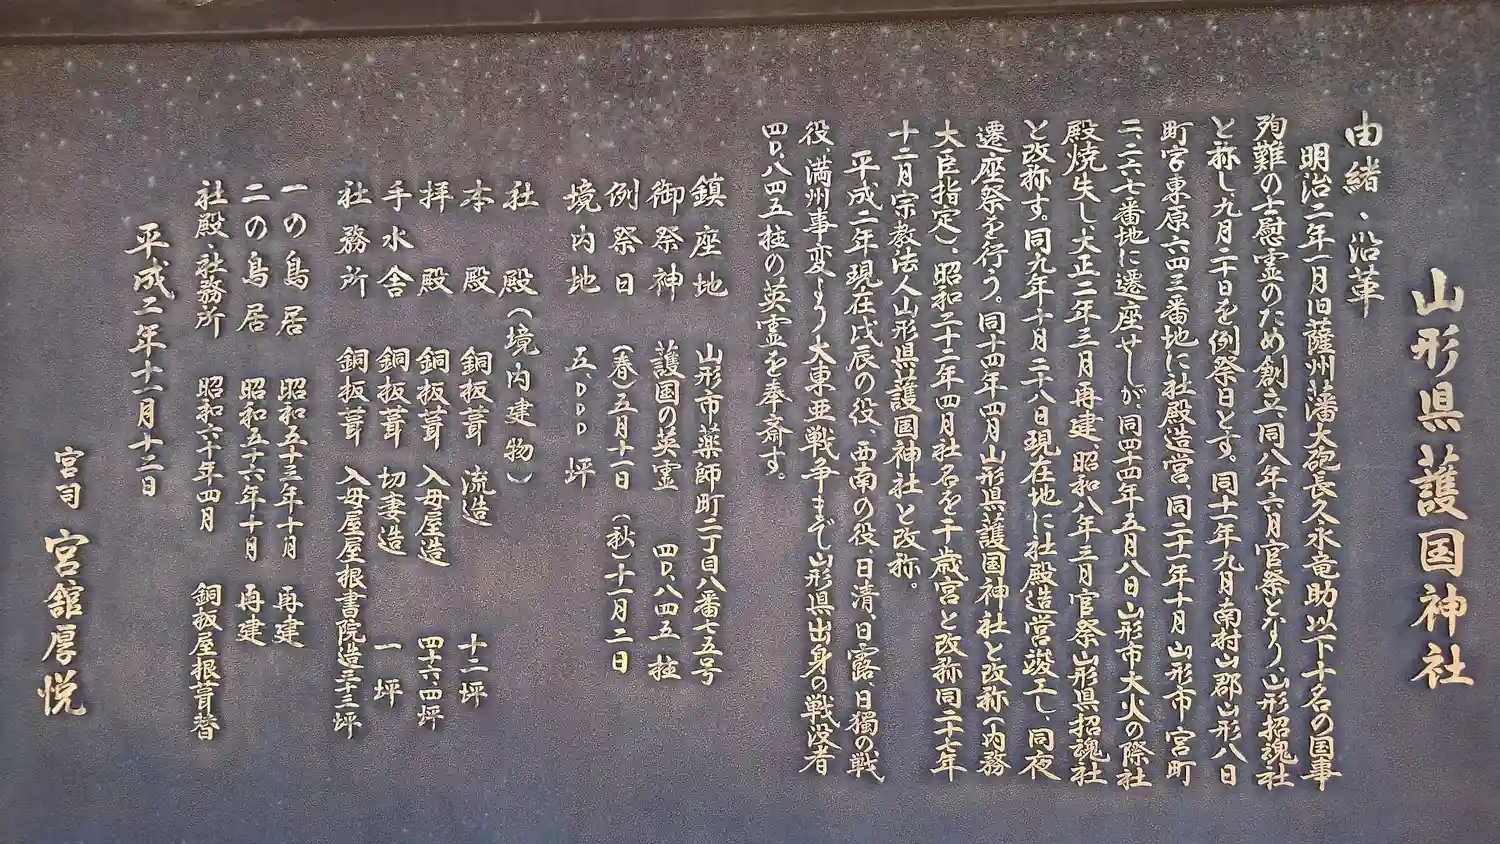 山形県護国神社
由緒、沿革
明治二年一月旧薩州藩大砲長久永竜助以下十名の国事
殉難の士慰霊のため創立、同八年六月官祭となり、山形招魂社
と称し九月二十日を例祭日とす。同十一年九月南村山郡山形八日
町字東原六四三番地に社殿造営、同二十一年十月山形市宮町
二、二六七番地に遷座せしが、同四十四年五月八日山形市大火の際社
殿焼失し、大正二年三月再建、昭和八年三月官祭山形県招魂社
と改称す。同九年十月二十八日現在地に社殿造営竣工し、同夜
遷座祭を行う。同十四年四月山形県護国神社と改称(内務
大臣指定)、昭和二十二年四月社名を千歳宮と改称同二十七年
十二月宗教法人山形県護国神社と改称。
平成二年現在戊辰の役、西南の役、日清、日露、日獨の戦
役、満州事変より大東亜戦争まで山形県出身の戦没者
四〇、八四五柱の英霊を奉斎す。
鎮座地 山形市薬師町二丁目八番七五号
御祭神 護国の英霊 四〇、八四五柱
例祭日 (春)五月十一日 (秋)十一月二日
境内地 五、〇〇〇坪
社殿(境内建物)
本殿 銅板葺 流造 十二坪
拝殿 銅板葺 入母屋造 四十六、四坪
手水舎 銅板葺 切妻造 一坪
社務所 銅板葺 入母屋屋根書院造三十三坪
一の鳥居 昭和五十三年十月 再建
二の鳥居 昭和五十六年十月 再建
社殿、社務所 昭和六十年四月 銅板屋根葺替
平成二年十一月十三日
宮司 宮舘厚悦